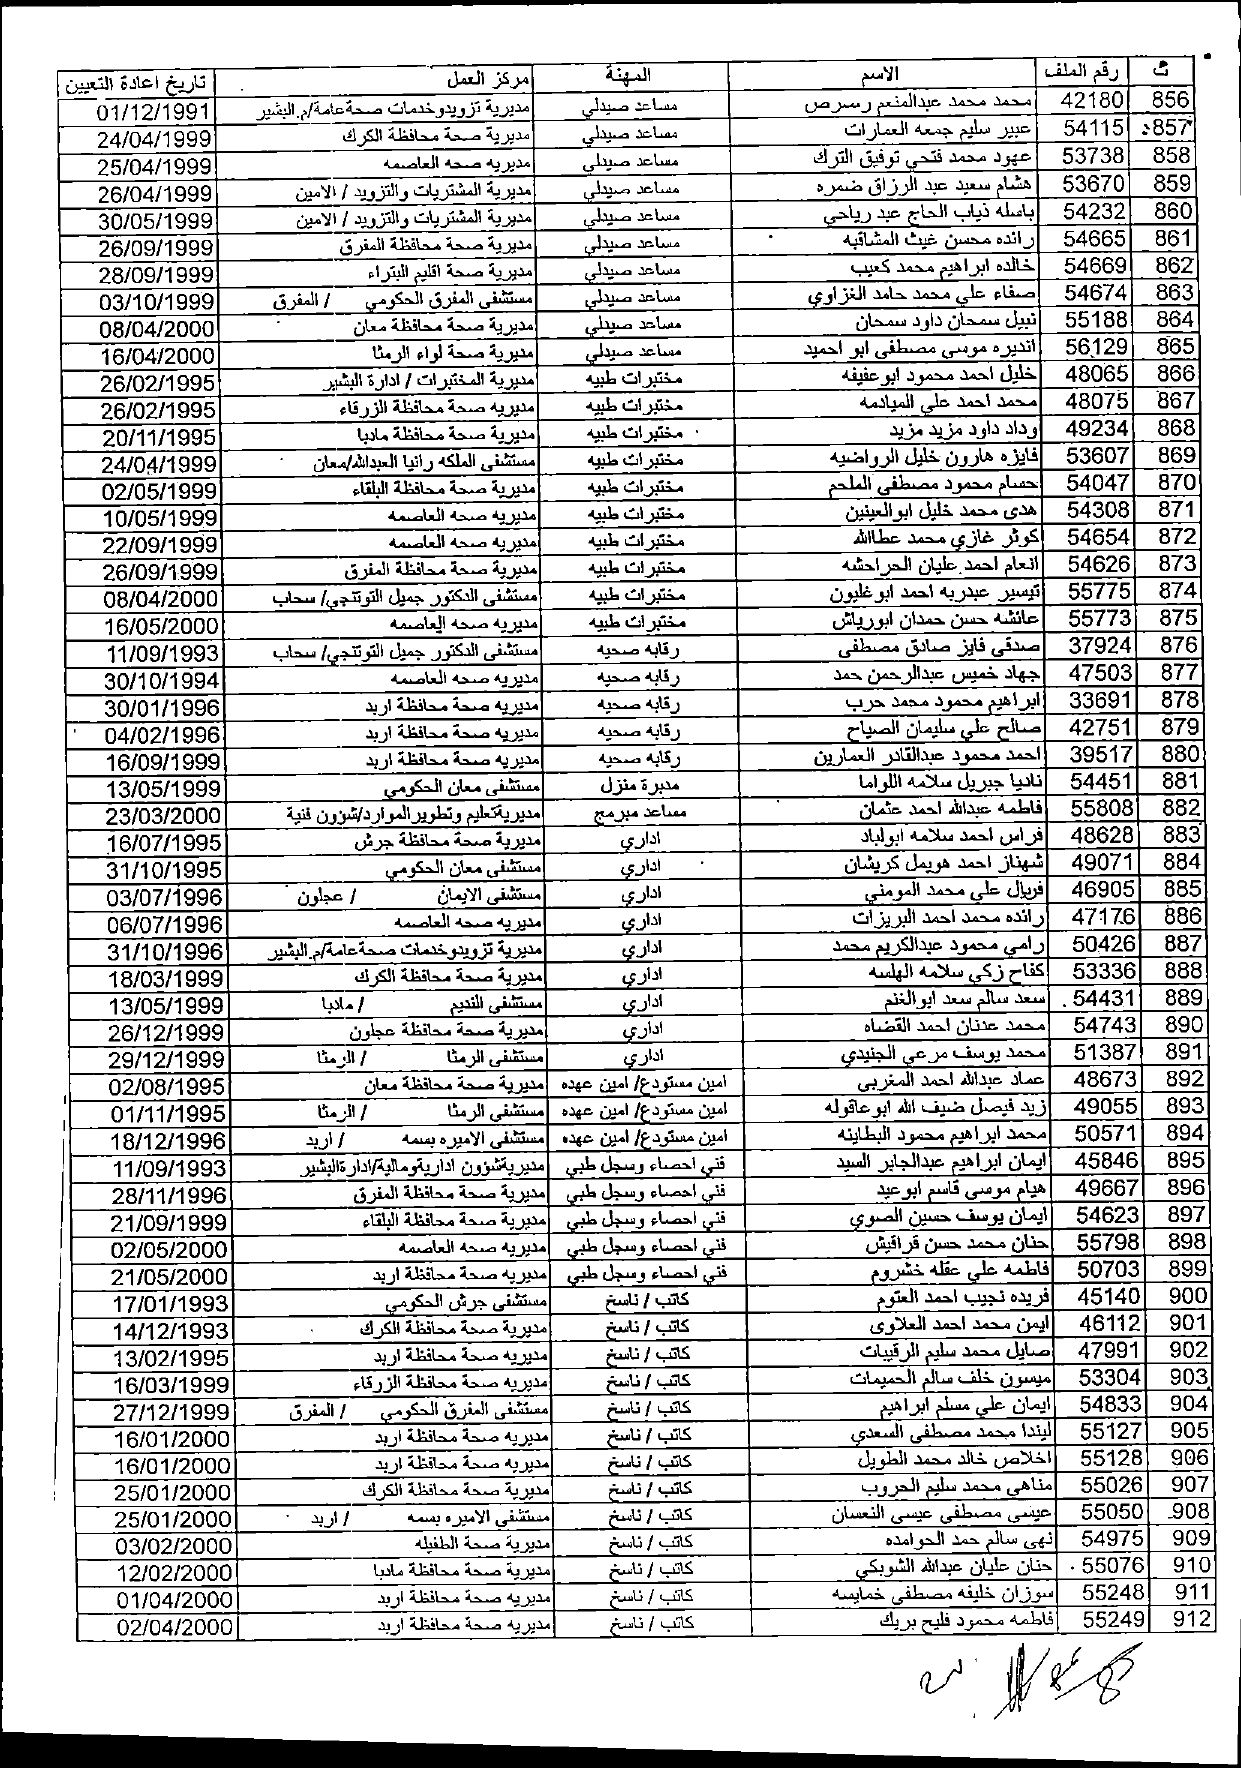 ت رقم الملف الاسم المهنة مركز العمل تاريخ اعادة التعيين
856 42180 محمد محمد عبدالمنعم رصرص مساعد صيدلي مديرية تزويدوخدمات صحةعامة/م.البشير 01/12/1991
857 54115 عبير سليم جمعه العمارات مساعد صيدلي مديرية صحة محافظة الكرك 24/04/1999
858 53738 عهود محمد فتحي توفيق الترك مساعد صيدلي مديريه صحه العاصمه 25/04/1999
859 53670 هشام سعيد عبد الرزاق ضمره مساعد صيدلي مديرية المشتريات والتزويد / الامين 26/04/1999
860 54232 باسله ذياب الحاج عيد رياحي مساعد صيدلي مديرية المشتريات والتزويد / الامين 30/05/1999
861 54665 رائده محسن غيث المشاقبه مساعد صيدلي مديرية صحة محافظة المفرق 26/09/1999
862 54669 خالده ابراهيم محمد كعيب مساعد صيدلي مديرية صحة اقليم البتراء 28/09/1999
863 54674 صفاء علي محمد حامد الغزاوي مساعد صيدلي مستشفى المفرق الحكومي / المفرق 03/10/1999
864 55188 نبيل سمحان داود سمحان مساعد صيدلي مديرية صحة محافظة معان 08/04/2000
865 56129 انديره موسى مصطفى ابو احميد مساعد صيدلي مديرية صحة لواء الرمثا 16/04/2000
866 48065 خليل احمد محمود ابوعفيفه مختبرات طبيه مديرية المختبرات / ادارة البشير 26/02/1995
867 48075 محمد احمد علي الميادمه مختبرات طبيه مديريه صحة محافظة الزرقاء 26/02/1995
868 49234 وداد داود مزيد مزيد مختبرات طبيه مديرية صحة محافظة مادبا 20/11/1995
869 53607 فايزه هارون خليل الرواضيه مختبرات طبيه مستشفى الملكه رانيا العبدالله/معان 24/04/1999
870 54047 حسام محمود مصطفى الملحم مختبرات طبيه مديرية صحة محافظة البلقاء 02/05/1999
871 54308 هدى محمد خليل ابوالعينين مختبرات طبيه مديريه صحه العاصمه 10/05/1999
872 54654 كوثر غازي محمد عطاالله مختبرات طبيه مديريه صحه العاصمه 22/09/1999
873 54626 انعام احمد عليان الحراحشه مختبرات طبيه مديرية صحة محافظة المفرق 26/09/1999
874 55775 تيسير عبدربه احمد ابوغليون مختبرات طبيه مستشفى الدكتور جميل التوتنجي/ سحاب 08/04/2000
875 55773 عائشه حسن حمدان ابورياش مختبرات طبيه مديريه صحه العاصمه 16/05/2000
876 37924 صدقى فايز صادق مصطفى رقابه صحيه مستشفى الدكتور جميل التوتنجي/ سحاب 11/09/1993
877 47503 جهاد خميس عبدالرحمن حمد رقابه صحيه مديريه صحه العاصمه 30/10/1994
878 33691 ابراهيم محمود محمد حرب رقابه صحيه مديريه صحة محافظة اربد 30/01/1996
879 42751 صالح علي سليمان الصياح رقابه صحيه مديريه صحة محافظة اربد 04/02/1996
880 39517 احمد محمود عبدالقادر العمارين رقابه صحيه مديريه صحة محافظة اربد 16/09/1999
881 54451 ناديا جبريل سلامه اللواما مدبرة منزل مستشفى معان الحكومي 13/05/1999
882 55808 فاطمه عبدالله احمد عثمان مساعد مبرمج مديريةتعليم وتطويرالموارد/شؤون فنية 23/03/2000
883 48628 فراس احمد سلامه ابولباد اداري مديرية صحة محافظة جرش 16/07/1995
884 49071 شهناز احمد هويمل كريشان اداري مستشفى معان الحكومي 31/10/1995
885 46905 فريال علي محمد المومني اداري مستشفى الايمان / عجلون 03/07/1996
886 47176 رائده محمد احمد البريزات اداري مديريه صحه العاصمه 06/07/1996
887 50426 رامي محمود عبدالكريم محمد اداري مديرية تزويدوخدمات صحةعامة/م.البشير 31/10/1996
888 53336 كفاح زكي سلامه الهلسه اداري مديرية صحة محافظة الكرك 18/03/1999
889 54431 سعد سالم سعد ابوالغنم اداري مستشفى النديم / مادبا 13/05/1999
890 54743 محمد عدنان احمد القضاه اداري مديرية صحة محافظة عجلون 26/12/1999
891 51387 محمد يوسف مرعي الجنيدي اداري مستشفى الرمثا / الرمثا 29/12/1999
892 48673 عماد عبدالله احمد المغربي امين مستودع/ امين عهده مديرية صحة محافظة معان 02/08/1995
893 49055 زيد فيصل ضيف الله ابوعاقوله امين مستودع/ امين عهده مستشفى الرمثا / الرمثا 01/11/1995
894 50571 محمد ابراهيم محمود البطاينه امين مستودع/ امين عهده مستشفى الاميره بسمه / اربد 18/12/1996
895 45846 ايمان ابراهيم عبدالجابر السيد فني احصاء وسجل طبي مديريةشؤون اداريةومالية/ادارةالبشير 11/09/1993
896 49667 هيام موسى قاسم ابوعيد فني احصاء وسجل طبي مديرية صحة محافظة المفرق 28/11/1996
897 54623 ايمان يوسف حسين الصوي فني احصاء وسجل طبي مديرية صحة محافظة البلقاء 21/09/1999
898 55798 حنان محمد حسن قراقيش فني احصاء وسجل طبي مديريه صحه العاصمه 02/05/2000
899 50703 فاطمه علي عقله خشروم فني احصاء وسجل طبي مديريه صحة محافظة اربد 21/05/2000
900 45140 فريده نجيب احمد العتوم كاتب / ناسخ مستشفى جرش الحكومي 17/01/1993
901 46112 ايمن محمد احمد العلاوى كاتب / ناسخ مديرية صحة محافظة الكرك 14/12/1993
902 47991 صايل محمد سليم الرقيبات كاتب / ناسخ مديريه صحة محافظة اربد 13/02/1995
903 53304 ميسون خلف سالم الحميمات كاتب / ناسخ مديريه صحة محافظة الزرقاء 16/03/1999
904 54833 ايمان علي مسلم ابراهيم كاتب / ناسخ مستشفى المفرق الحكومي / المفرق 27/12/1999
905 55127 ليندا محمد مصطفى السعدي كاتب / ناسخ مديريه صحة محافظة اربد 16/01/2000
906 55128 اخلاص خالد محمد الطويل كاتب / ناسخ مديريه صحة محافظة اربد 16/01/2000
907 55026 مناهي محمد سليم الحروب كاتب / ناسخ مديرية صحة محافظة الكرك 25/01/2000
908 55050 عيسى مصطفى عيسى النعسان كاتب / ناسخ مستشفى الاميره بسمه / اربد 25/01/2000
909 54975 نهى سالم حمد الحوامده كاتب / ناسخ مديرية صحة الطفيله 03/02/2000
910 55076 حنان عليان عبدالله الشوبكي كاتب / ناسخ مديرية صحة محافظة مادبا 12/02/2000
911 55248 سوزان خليفه مصطفى خمايسه كاتب / ناسخ مديريه صحة محافظة اربد 01/04/2000
912 55249 فاطمه محمود فليح بريك كاتب / ناسخ مديريه صحة محافظة اربد 02/04/2000